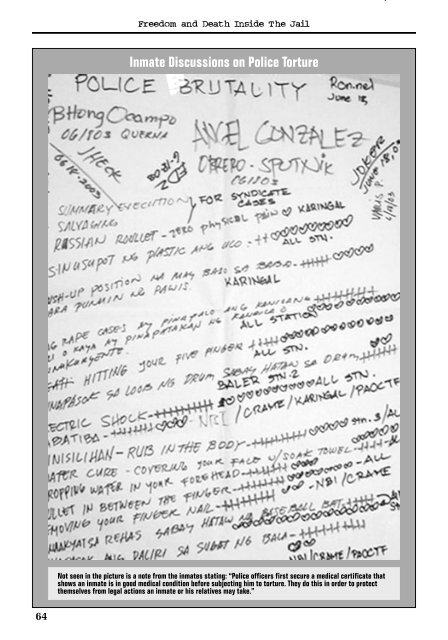 Freedom and Death Inside The Jail
Inmate Discussions on Police Torture
POLICE BRUTALITY
Ron.nel
June 18,
BHong Ocampo
06/18/03 QUERNA
JHECK
06-18-2003
ANGEL GONZALEZ
OBRERO - SPUTNIK
06/18/03
EDZ
6-18-03
JOKER
SUMMARY EXECUTION FOR SYNDICATE CASES
SALVAGING
RUSSIAN ROULLET - ZERO PHYSICAL PAIN KARINGAL
SINUSUPOT NG PLASTIC ANG ULO -
ALL STN.
USH-UP POSITION NA MAY BASO SA
ARA PUNUIN NG PAWIS. KARINGAL
G RAPE CASES AY PINAPALO ANG KANILANG
O KAYA AY PINAPATAKAN NG KANDILA
ALL STATION
HITTING YOUR FIVE FINGER
ALL STN.
INAPASOK SA LOOB NG DRUM, SABAY HATAW SA DRUM,
BALER STN.2
ECTRIC SHOCK - ALL STN.
BATIBA - NBI / CRAME / KARINGAL / PAOCTF
INISILIHAN - RUB IN THE BODY - Stn. 3/AL
ATER CURE - COVERING YOUR FACE W/ SOAK TOWEL -
ROPPING WATER IN YOUR FOREHEAD - ALL
LLET IN BETWEEN THE FINGER - NBI / CRAME
EMOVING YOUR FINGER NAIL -
SA REHAS SABAY HATAW NG BASEBALL BAT
ANG DALIRI SA SUGAT NG BALA -
NBI / CRAME / PAOCTF
Not seen in the picture is a note from the inmates stating: "Police officers first secure a medical certificate that
shows an inmate is in good medical condition before subjecting him to torture. They do this in order to protect
themselves from legal actions an inmate or his relatives may take."
64